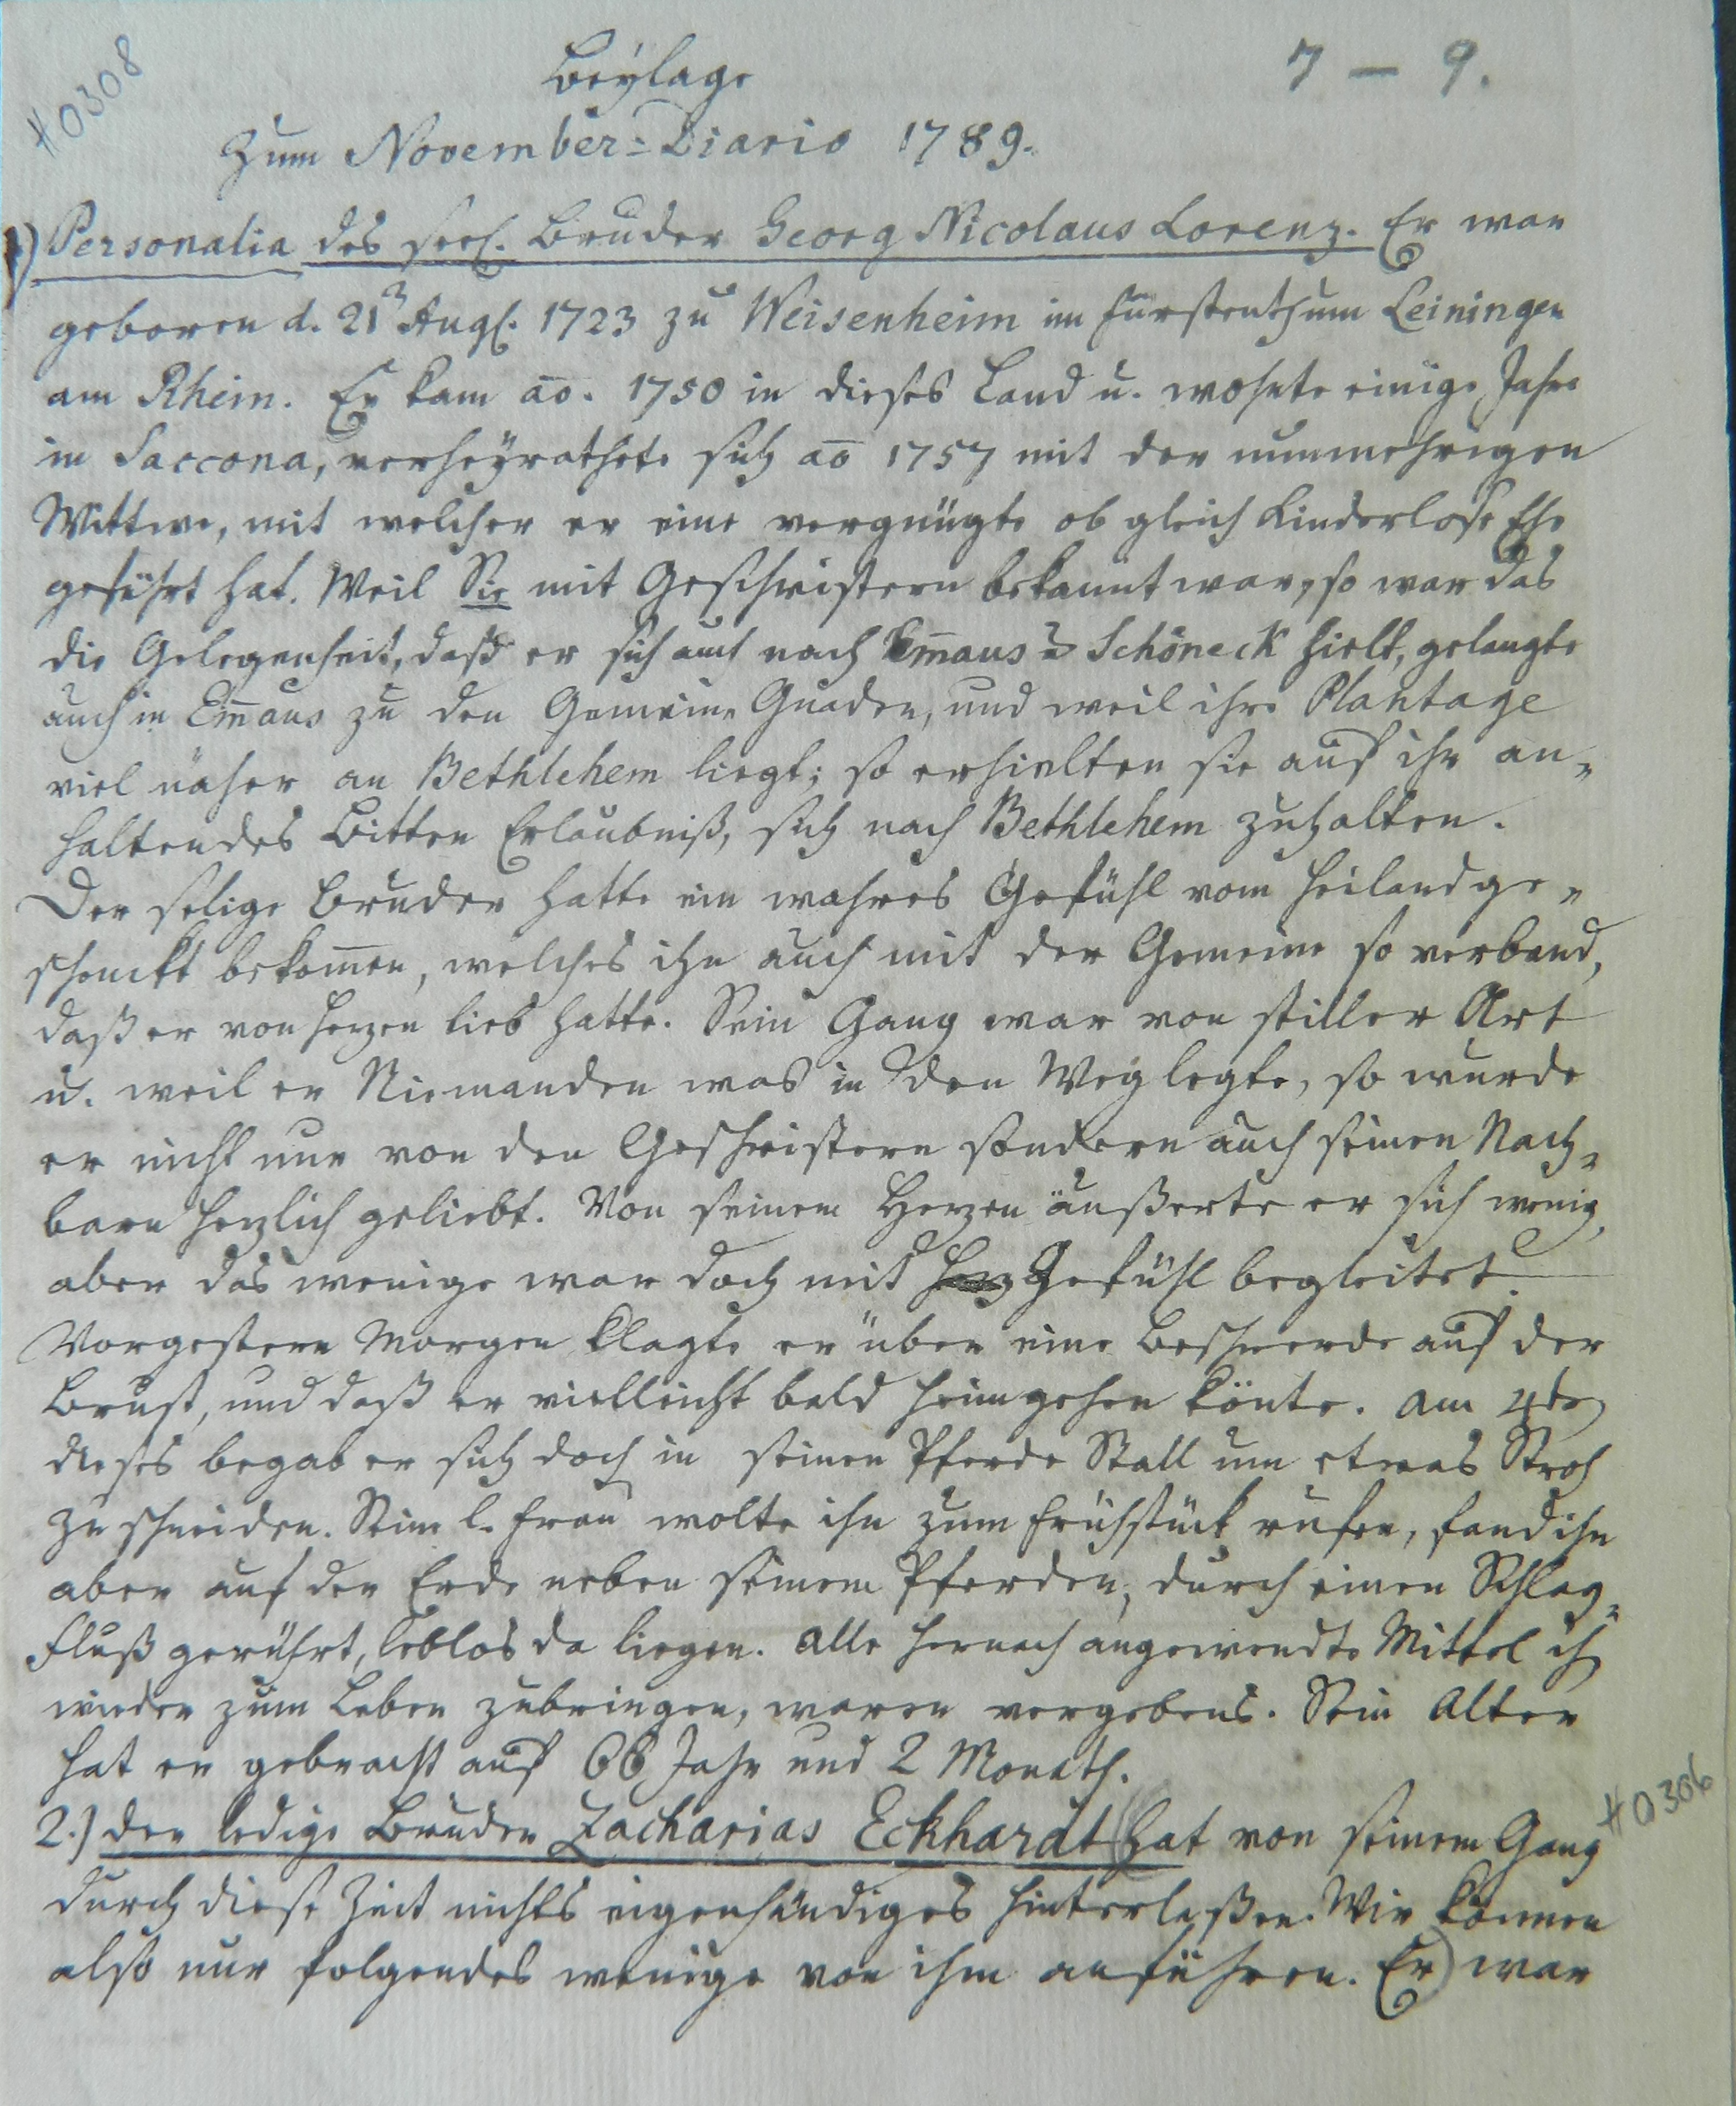 #0308
Beylage
7 – 9.
Zum November-Diario 1789.
1) Personalia des seel. Bruder Georg Nicolaus Lorenz. Er war
geboren d. 21n Augs. 1723 zu Weisenheim im Fürstenthum Leiningen
am Rhein. Er kam ao. 1750 in dieses Land u. wohnte einige Jahre
in Saccona, verheyrathete sich ao 1757 mit der nunmehrigen
Wittwe, mit welcher er eine vergnügte ob gleich Kinderlose Ehe
geführt hat. Weil Sie mit Geschwistern bekannt war, so war das
die Gelegenheit, daß er sich auch nach Em̄aus u. Schöneck hielt, gelangte
auch in Em̄aus zu den Gemein Gnaden, und weil ihre Plantage
viel näher an Bethlehem liegt; so erhielten sie auf ihr an-
haltendes Bitten Erlaubniß, sich nach Bethlehem zuhalten.
Der selige Bruder hatte ein wahres Gefühl vom Heiland ge-
schenckt bekom̄en, welches ihn auch mit der Gemeine so verband,
daß er von Herzen lieb hatte. Sein Gang war von stiller Art
u. weil er Niemanden was in den Weg legte, so wurde
er nicht nur von den Geschwistern sondern auch seinen Nach-
barn herzlich geliebt. Von seinem Herzen äußerte er sich wenig,
aber das wenige war doch mit Gefühl begleitet.
Vorgestern Morgen klagte er über eine Beschwerde auf der
Brust, und daß er vielleicht bald heimgehen könte. Am 4ten
dieses begab er sich doch in seinen Pferde Stall um etwas Stroh
zu schneiden. Seine l. Frau wolte ihn zum Frühstück rufen, fand ihn
aber auf der Erde neben seinem Pferden, durch einen Schlag-
Fluß gerührt, leblos da liegen. Alle hernach angewendte Mittel ihn
wieder zum Leben zubringen, waren vergebens. Sein Alter
hat er gebracht auf 66 Jahr und 2 Monath.
#0306
2.) der ledige Bruder Zacharias Eckhardt hat von seinem Gang
durch diese Zeit nichts eigenhändiges hinterlaßen. Wir können
also nur folgendes wenige von ihm anführen. Er war